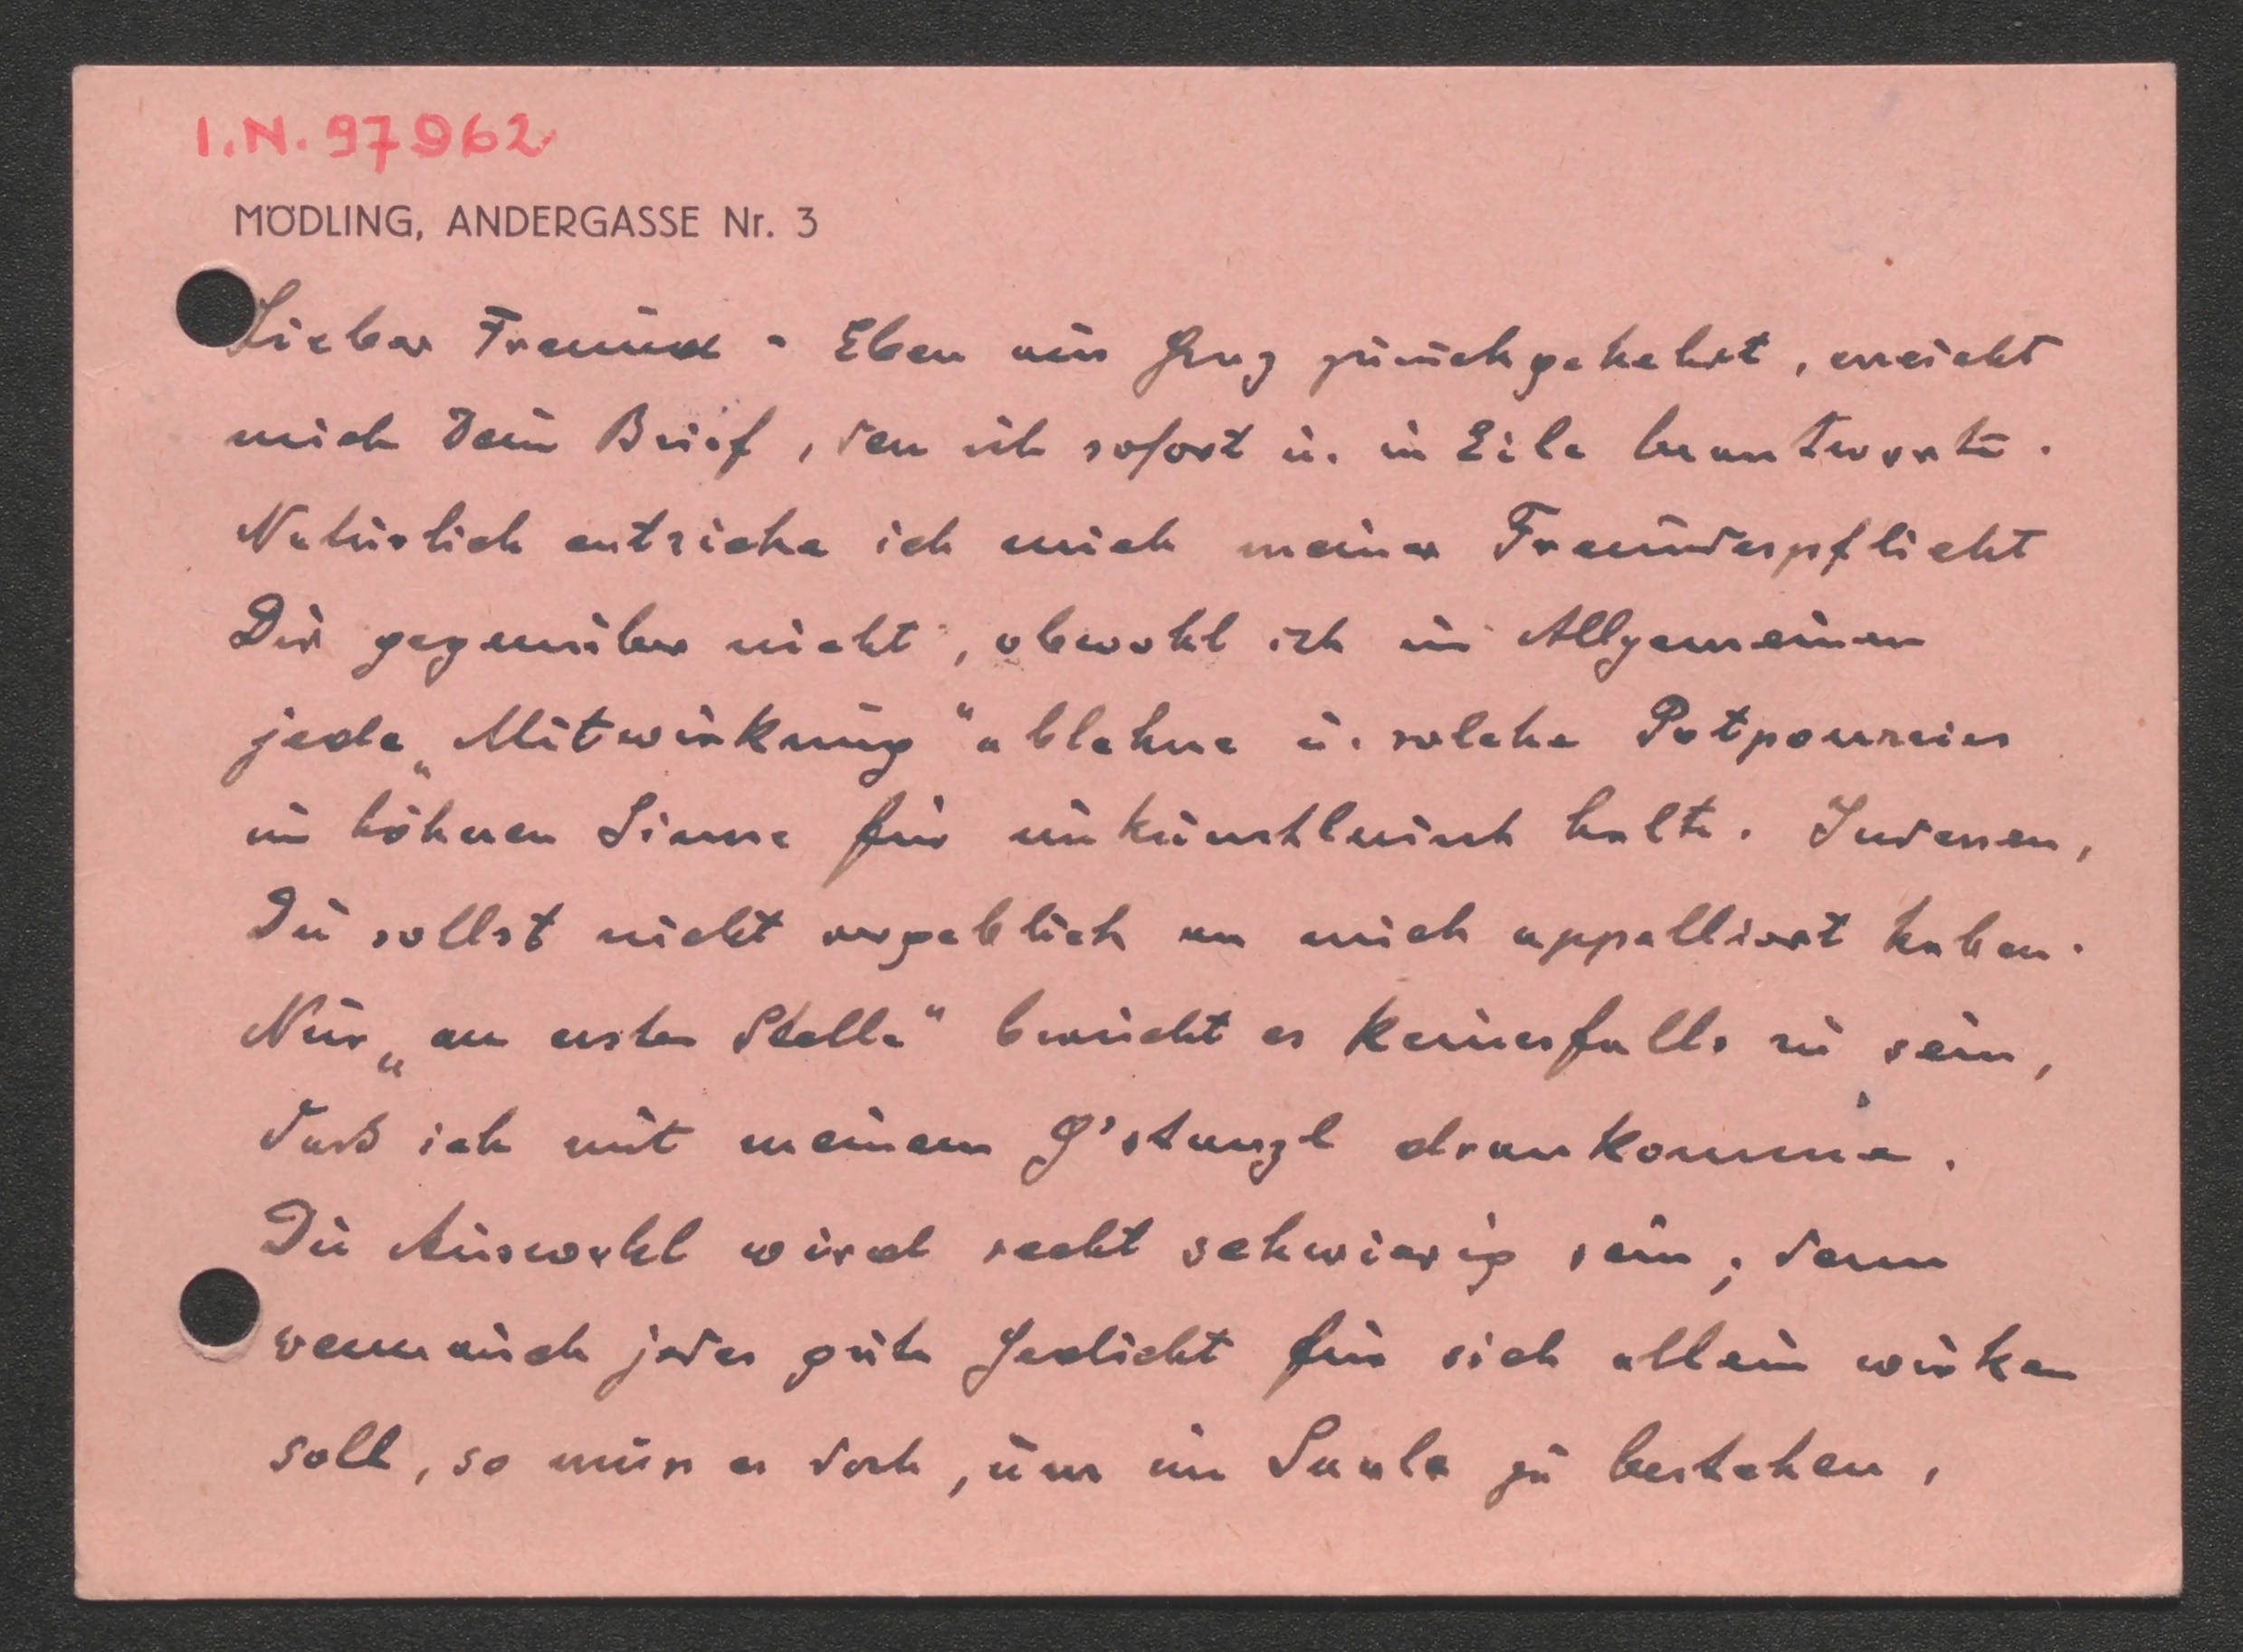 I.N. 97962
MÖDLING, ANDERGASSE Nr. 3
Lieber Freund - Eben aus Graz zurückgekehrt, erreicht
mich Dein Brief, den ich sofort u. in Eile beantworte.
Natürlich entziehe ich mich meiner Freundespflicht
Dir gegenüber nicht, obwohl ich im Allgemeinen
jede „Mitwirkung" ablehne u. solche Potpourries
im höheren Sinne für unkünstlerisch halte. Indessen,
Du sollst nicht vergeblich an mich appelliert haben.
Nur „an erster Stelle" braucht es keinesfalls zu sein,
dass ich mit meinem G'stanzl drankomme.
Die Auswahl wird recht schwierig sein; denn
wenn auch jedes gute Gedicht für sich allein wirken
soll, so muss es doch, um im Saale zu bestehen,